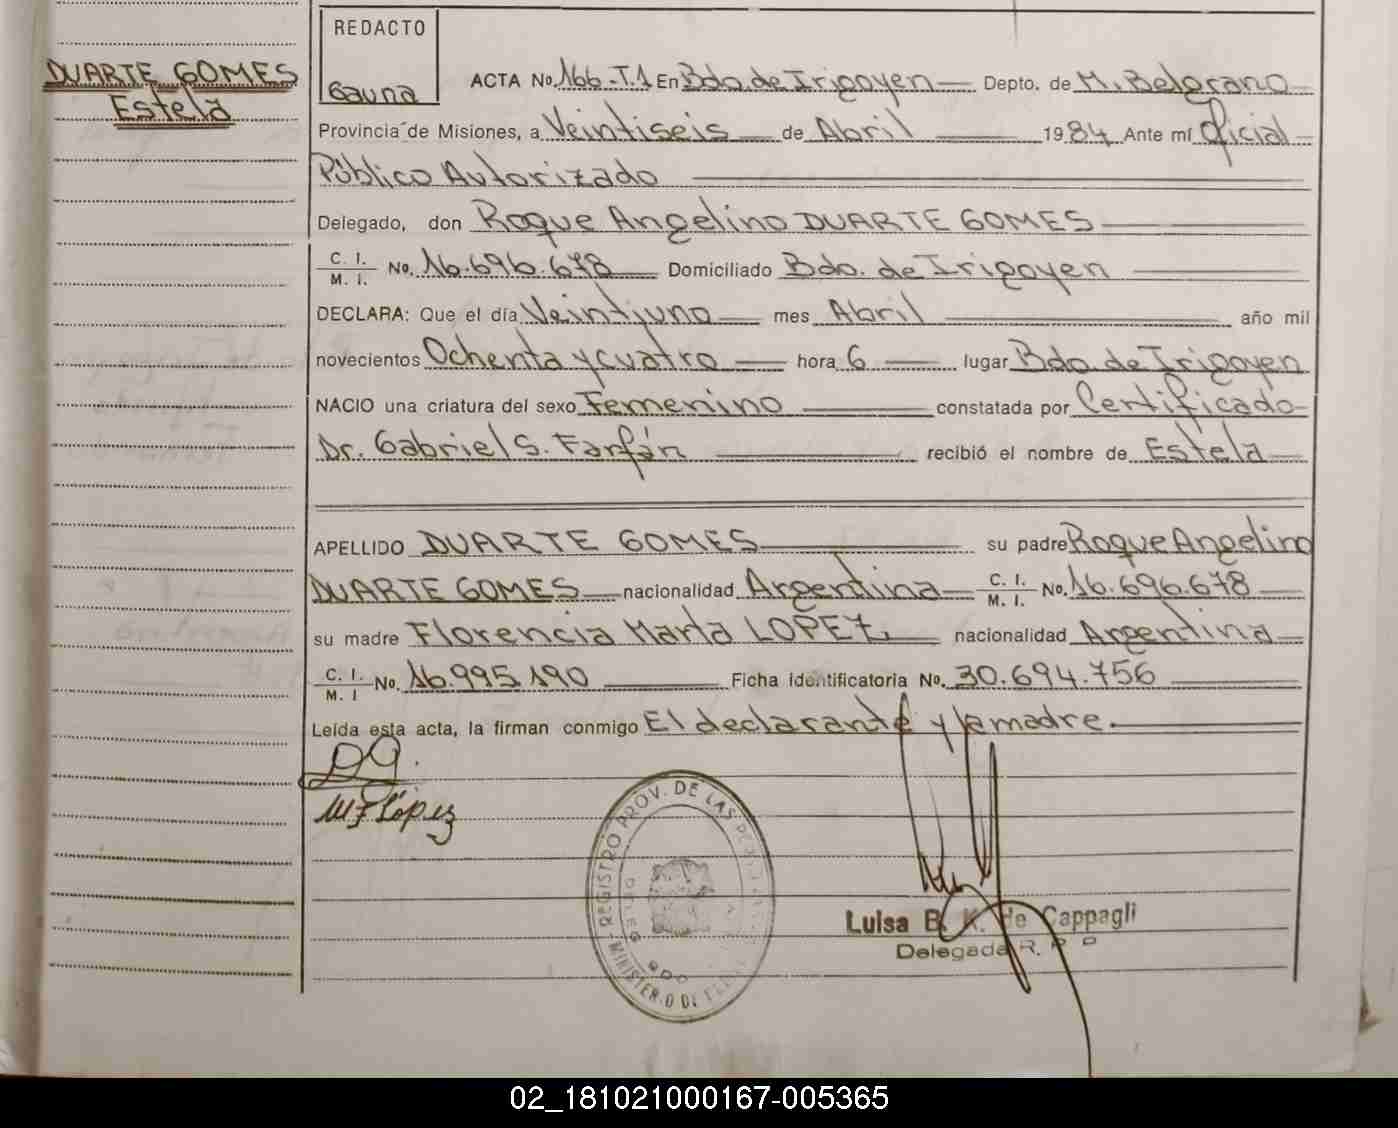 DUARTE GOMES
Estela
REDACTO
Gauna
ACTA No. 166-T.1 En Bdo. de Irigoyen Depto. de M. Belgrano
Provincia de Misiones, a Veintiseis de Abril 1984 Ante mí Oficial
Público Autorizado
Delegado, don Roque Angelino DUARTE GOMES
C. I.
M. I. No. 16.696.678 Domiciliado Bdo. de Irigoyen
DECLARA: Que el día Veintiuno mes Abril año mil
novecientos Ochenta y cuatro hora 6 lugar Bdo de Irigoyen
NACIO una criatura del sexo Femenino constatada por Certificado
Dr. Gabriel S. Farfán recibió el nombre de Estela
APELLIDO DUARTE GOMES su padre Roque Angelino
DUARTE GOMES nacionalidad Argentina C. I. M. I. No. 16.696.678
su madre Florencia Marta LOPEZ nacionalidad Argentina
C. I.
M. I No. 16.995.190 Ficha identificatoria No. 30.694.756
Leída esta acta, la firman conmigo El declarante y la madre.
DG.
MF López
REGISTRO PROV. DE LAS
MINISTERIO DE
Luisa B. K. de Cappagli
Delegada R. P. P
02_181021000167-005365